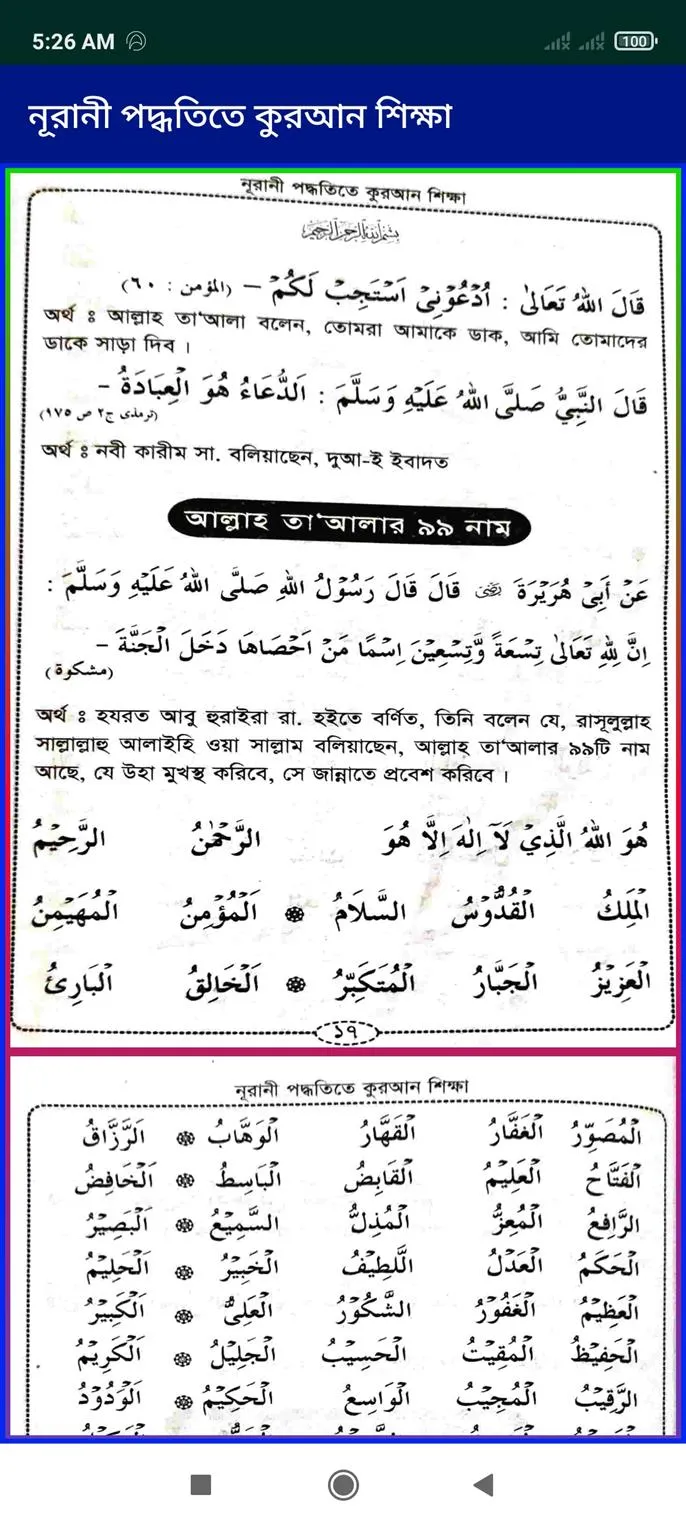 5:26 AM
100
নূরানী পদ্ধতিতে কুরআন শিক্ষা
নূরানী পদ্ধতিতে কুরআন শিক্ষা
بِسْمِ اللهِ الرَّحْمٰنِ الرَّحِيْمِ
قَالَ اللهُ تَعَالىٰ : اُدْعُوْنِىْ اَسْتَجِبْ لَكُمْ – (المؤمن : ٦٠)
অর্থ ঃ আল্লাহ তা'আলা বলেন, তোমরা আমাকে ডাক, আমি তোমাদের
ডাকে সাড়া দিব ।
قَالَ النَّبِيُّ صَلَّى اللهُ عَلَيْهِ وَسَلَّمَ : اَلدُّعَاءُ هُوَ الْعِبَادَةُ –
(ترمذى ج٢ ص ١٧٥)
অর্থ ঃ নবী কারীম সা. বলিয়াছেন, দুআ-ই ইবাদত
আল্লাহ তা'আলার ৯৯ নাম
عَنْ أَبِىْ هُرَيْرَةَ رضى قَالَ قَالَ رَسُوْلُ اللهِ صَلَّى اللهُ عَلَيْهِ وَسَلَّمَ :
اِنَّ لِلّٰهِ تَعَالىٰ تِسْعَةً وَّتِسْعِيْنَ اِسْمًا مَنْ اَحْصَاهَا دَخَلَ الْجَنَّةَ –
(مشكوة)
অর্থ ঃ হযরত আবু হুরাইরা রা. হইতে বর্ণিত, তিনি বলেন যে, রাসূলুল্লাহ
সাল্লাল্লাহু আলাইহি ওয়া সাল্লাম বলিয়াছেন, আল্লাহ তা'আলার ৯৯টি নাম
আছে, যে উহা মুখস্থ করিবে, সে জান্নাতে প্রবেশ করিবে ।
هُوَ اللهُ الَّذِيْ لَآ اِلٰهَ اِلَّا هُوَ الرَّحْمٰنُ الرَّحِيْمُ
الْمَلِكُ الْقُدُّوْسُ السَّلَامُ ۞ اَلْمُؤْمِنُ الْمُهَيْمِنُ
الْعَزِيْزُ الْجَبَّارُ الْمُتَكَبِّرُ ۞ اَلْخَالِقُ الْبَارِئُ
১৭
নূরানী পদ্ধতিতে কুরআন শিক্ষা
الْمُصَوِّرُ الْغَفَّارُ الْقَهَّارُ الْوَهَّابُ ۞ اَلرَّزَّاقُ
الْفَتَّاحُ الْعَلِيْمُ الْقَابِضُ الْبَاسِطُ ۞ اَلْخَافِضُ
الرَّافِعُ الْمُعِزُّ الْمُذِلُّ السَّمِيْعُ ۞ اَلْبَصِيْرُ
الْحَكَمُ الْعَدْلُ اللَّطِيْفُ الْخَبِيْرُ ۞ اَلْحَلِيْمُ
الْعَظِيْمُ الْغَفُوْرُ الشَّكُوْرُ الْعَلِىُّ ۞ اَلْكَبِيْرُ
الْحَفِيْظُ الْمُقِيْتُ الْحَسِيْبُ الْجَلِيْلُ ۞ اَلْكَرِيْمُ
الرَّقِيْبُ الْمُجِيْبُ الْوَاسِعُ الْحَكِيْمُ ۞ اَلْوَدُوْدُ